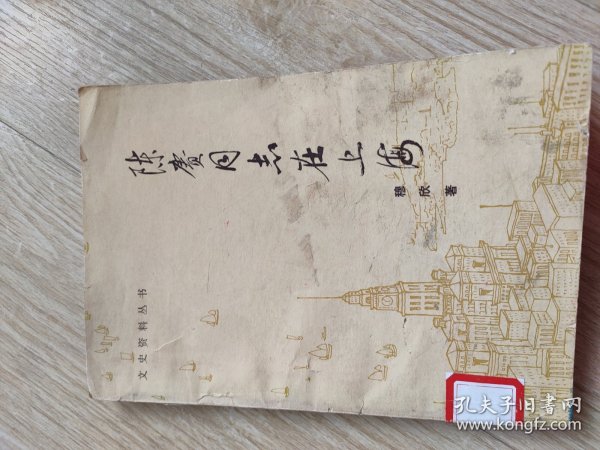 陈赓同志在上海
穆欣 著
文史资料丛书
孔夫子旧书网
www.kongfz.com